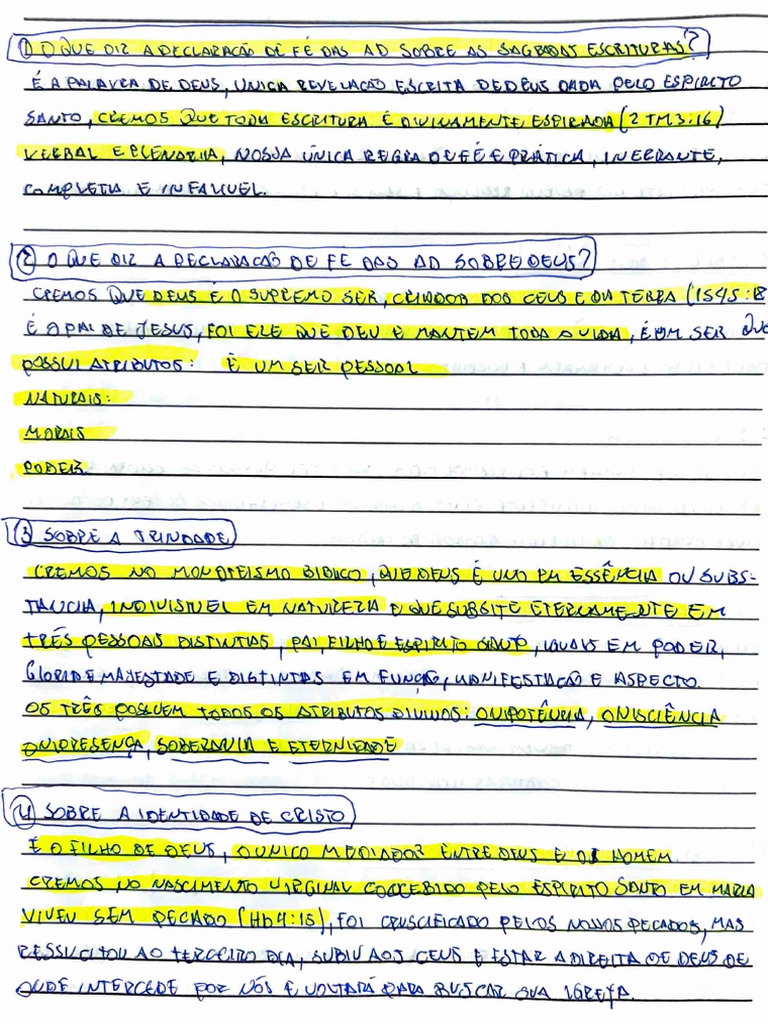 ① O QUE DIZ A DECLARAÇÃO DE FÉ DAS AD SOBRE AS SAGRADAS ESCRITURAS?
É A PALAVRA DE DEUS, UNICA REVELAÇÃO ESCRITA DE DEUS DADA PELO ESPIRITO
SANTO, CREMOS QUE TODA ESCRITURA É DIVINAMENTE ESPIRADA (2 TM 3:16)
VERBAL E PLENARIA, NOSSA ÚNICA REGRA DE FÉ E PRÁTICA, INERRANTE,
COMPLETA E INFALIVEL.
② O QUE DIZ A DECLARAÇÃO DE FÉ DAS AD SOBRE DEUS?
CREMOS QUE DEUS É O SUPREMO SER, CRIADOR DOS CEUS E DA TERRA (IS 45:18
É O PAI DE JESUS, FOI ELE QUE DEU E MANTEM TODA A VIDA, É UM SER QUE
POSSUI ATRIBUTOS: É UM SER PESSOAL
NATURAIS:
MORAIS
PODER
③ SOBRE A TRINDADE
CREMOS NO MONOTEISMO BIBLICO, QUE DEUS É UNO EM ESSÊNCIA OU SUBS-
TANCIA, INDIVISIVEL EM NATUREZA E QUE SUBSITE ETERNAMENTE EM
TRÊS PESSOAS DISTINTAS, PAI, FILHO E ESPIRITO SANTO, IGUAIS EM PODER,
GLORIA E MAJESTADE E DISTINTAS EM FUNÇÃO, MANIFESTAÇÃO E ASPECTO.
OS TRÊS POSSUEM TODOS OS ATRIBUTOS DIVINOS: ONIPOTÊNCIA, ONISCIÊNCIA
ONIPRESENÇA, SOBERANIA E ETERNIDADE
④ SOBRE A IDENTIDADE DE CRISTO
É O FILHO DE DEUS, O UNICO MEDIADOR ENTRE DEUS E O HOMEM
CREMOS NO NASCIMENTO VIRGINAL CONCEBIDO PELO ESPIRITO SANTO EM MARIA
VIVEU SEM PECADO (Hb 4:15), FOI CRUSCIFICADO PELOS NOSSOS PECADOS, MAS
RESSUCITOU AO TERCEIRO DIA, SUBIU AOS CEUS E ESTAR A DIREITA DE DEUS DE
ONDE INTERCEDE POR NÓS E VOLTARÁ PARA BUSCAR SUA IGREJA.